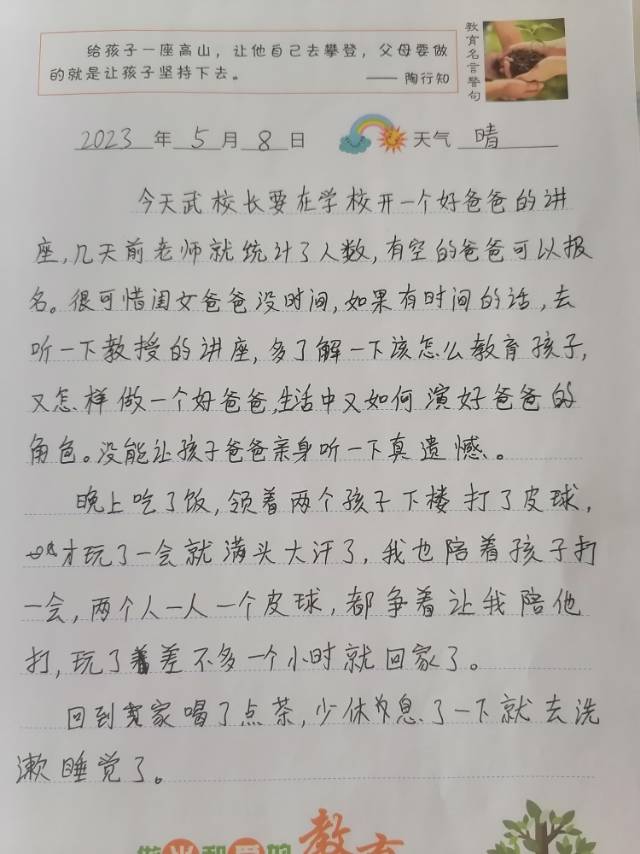 给孩子一座高山，让他自己去攀登，父母要做
的就是让孩子坚持下去。
——陶行知
教育名言警句
2023年5月8日 天气 晴
今天武校长要在学校开一个好爸爸的讲
座,几天前老师就统计了人数,有空的爸爸可以报
名。很可惜闺女爸爸没时间,如果有时间的话,去
听一下教授的讲座,多了解一下该怎么教育孩子,
又怎样做一个好爸爸,生活中又如何演好爸爸的
角色。没能让孩子爸爸亲身听一下真遗憾。
晚上吃了饭,领着两个孩子下楼打了皮球,
才玩了一会就满头大汗了,我也陪着孩子打
一会,两个人一人一个皮球,都争着让我陪他
打,玩了差不多一个小时就回家了。
回到家喝了点茶,少休息了一下就去洗
漱睡觉了。
教育